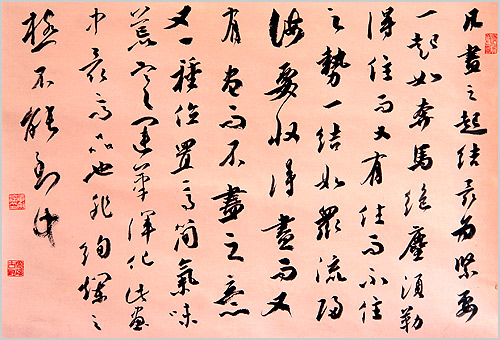 凡畫之起結最為緊要
一起如奔馬絕塵須勒
得住而又有住而不住
之勢一結如眾流歸
海要收得盡而又
有盡而不盡之意
又一種位置高簡氣味
荒寒運筆渾化此畫
中最高品也非絢爛之
極不能到此